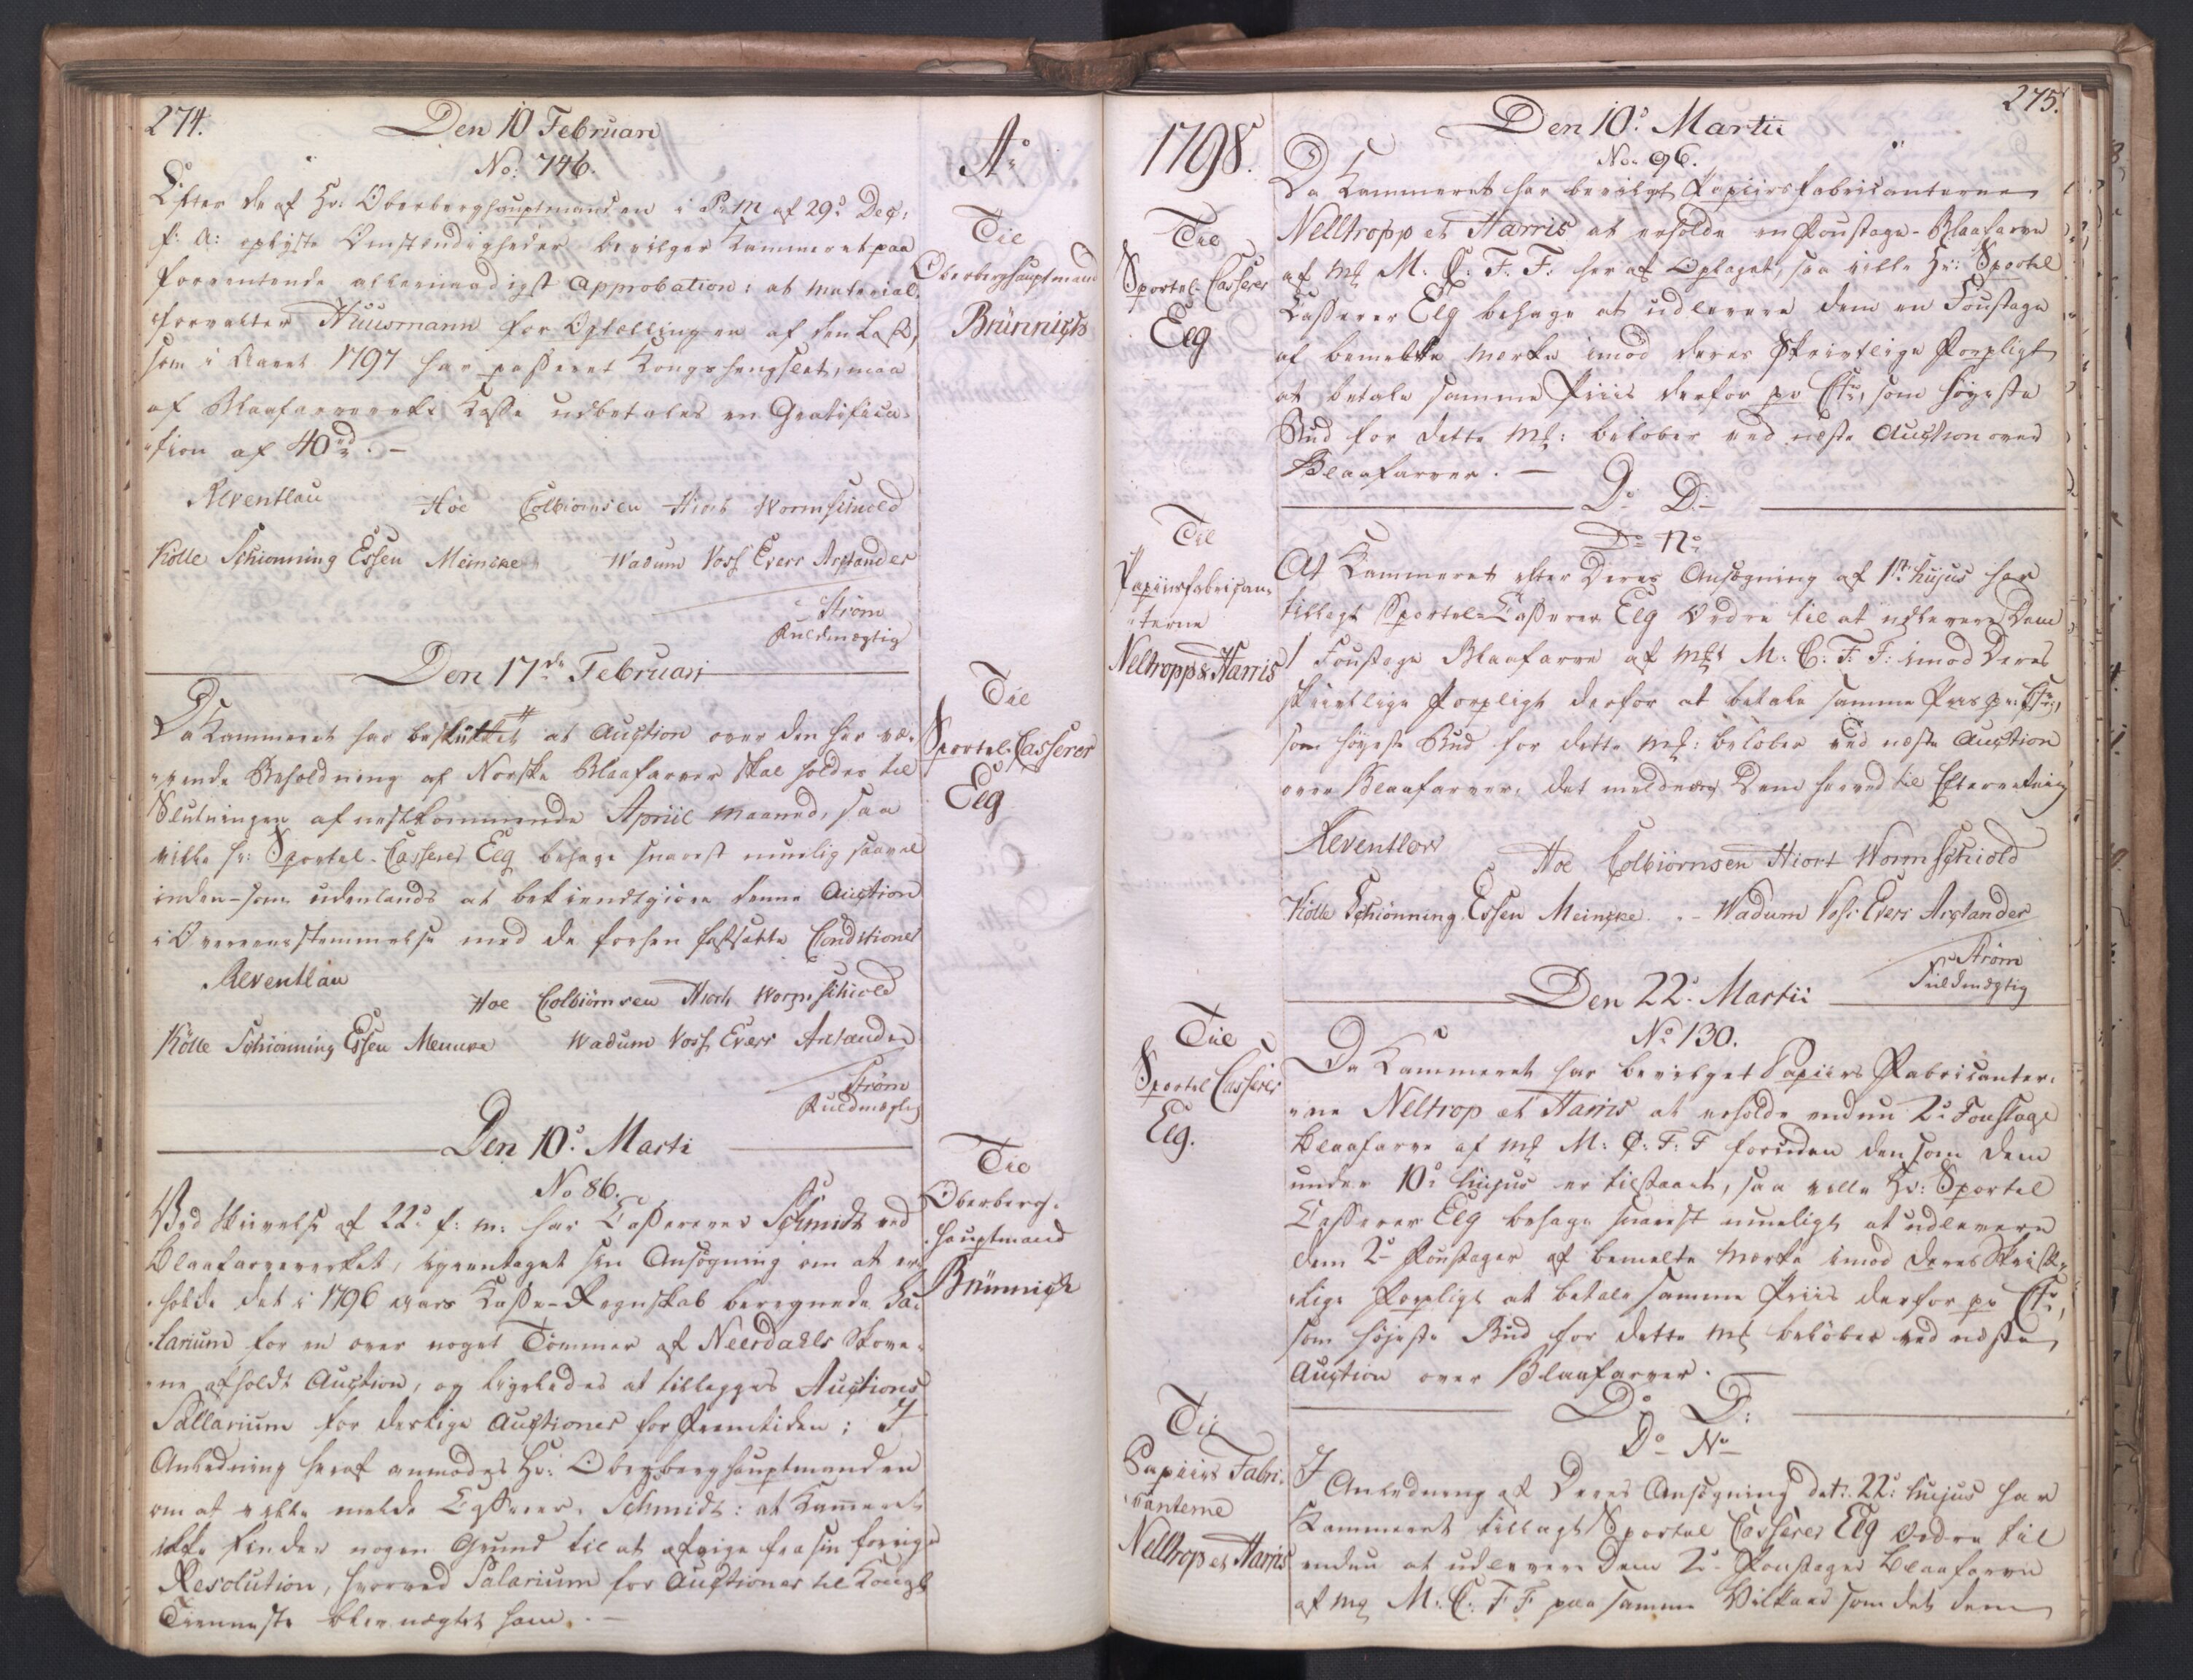 274.
Den 10 Februari
No: 746.
Efter de af Hr: Oberberghauptmanden i P: M af 29d Dec:
f: A: oplyste Omstændigheder bevilger Kammeret paa
forventende allernaadigst Approbation: at Material-
forvalter Huusmann for Optællingen af den Last,
som i Aaret 1797 har passeret Kongshengslet, maa
af Blaafarveverkets Casse udbetales en Gratifica-
tion af 40 rd. —
Reventlau Hoe Colbiornsen Hiort Wormschiold
Kölle Schionning Essen Meincke Wadum Voss Evers Arstander
Strøm
Fuldmægtig
Den 17de Februari
Da Kammeret har besluttet at Auction over den her væ-
rende Beholdning af Norske Blaafarver skal holdes til
Slutningen af nestkommende Apriil Maaned, saa
ville Hr: Sportel-Casserer Elg behage snarest muelig saavel
inden- som udenlands at bekiendtgiøre denne Auction
i Overeensstemmelse med de forhen fastsatte Conditioner
Reventlau
Hoe Colbiörnsen Hiort Wormschiold
Kölle Schionning Essen Meincke Wadum Voss Evers Arstander
Strøm
Fuldmægtig
Den 10d Marti
No 86.
Ved Skrivelse af 22d f: m: har Cassereren Schmidt ved
Blaafarveverket, igientaget sin Ansøgning om at er-
holde det i 1796 Aars Casse-Regnskab beregnede Sa-
larium for en over noget Tømmer af Neerdahls Skove-
ne afholdt Auction, og ligeledes at tillegges Auctions
Sallarium for deslige Auctioner for Fremtiden; I
Anledning heraf anmodes Hr: Oberberghauptmanden
om at ville melde Casserer Schmidt: at Kameret
ikke finder nogen Grund til at afvige fra sin forrige
Resolution, hvorved Salarium for Auctioner til Kongl
Tienneste blev nægtet ham. —
Ao
Til
Oberberghauptmand
Brünnich
Til
Sportel-Casserer
Elg
Til
Oberberg-
hauptmand
Brünnich
1798.
275.
Til
Sportel-Casserer
Elg
Til
Papiirsfabrican-
terne
Neltropp & Harris
Til
Sportel Casserer
Elg.
Til
Papiirs Fabri-
kanterne
Nelltrop et Harris
Den 10d Martii
No 96.
Da Kammeret har bevilget Papiirsfabricanterne
Nelltropp et Harris at erholde en Foustage-Blaafarve
af Mk M: C: F: F: her af Oplaget, saa ville Hr: Sportel
Casserer Elg behage at udlevere dem en Foustage
af bemeldte Merke imod deres skrivtlige Forpligt
at betale samme Priis derfor pr Ctr, som højeste
Bud for dette Mk: beløber ved neste Auction over
Blaafarver. —
Do D.
Do No
At Kammeret efter Deres Ansøgning af 1ste hujus har
tillagt Sportel-Casserer Elg Ordre til at udlevere Dem
1 Foustage Blaafarve af Mkt M: C: F: F: imod Deres
skrivtlige Forpligt derfor at betale samme Priis pr: Ctr,
som højeste Bud for dette Mk: beløber ved neste Auction
over Blaafarver, det meldes Dem herved til Efterretning
Reventlow
Hoe Colbiørnsen Hiort Wormschiold
Kölle Schiønning Essen Meincke. - Wadum Voss Evers Arstander
Strøm
Fuldmægtig
Den 22d Martii
No 130.
Da Kammeret har bevilget Papiirs Fabricanter-
ne Neltrop et Harris at erholde endnu 2de Foustage
Blaafarve af Mk M: C: F: F foruden den som dem
under 10d hujus er tilstaaet, saa ville Hr: Sportel
Casserer Elg behage snarest mueligt at udlevere
dem 2de Foustager af bemelte Merke imod deres Skrift-
lige Forpligt at betale samme Priis derfor pr Ctr,
som højeste Bud for dette Mk beløber ved neste
Auction over Blaafarver. —
Do D:
Do No
I Anledning af Deres Ansøgning dat: 22d hujus har
Kammeret tillagt Sportel Casserer Elg Ordre til
endnu at udlevere Dem 2de Foustager Blaafarve
af Mk M: C: F F paa samme Vilkaar som det dem